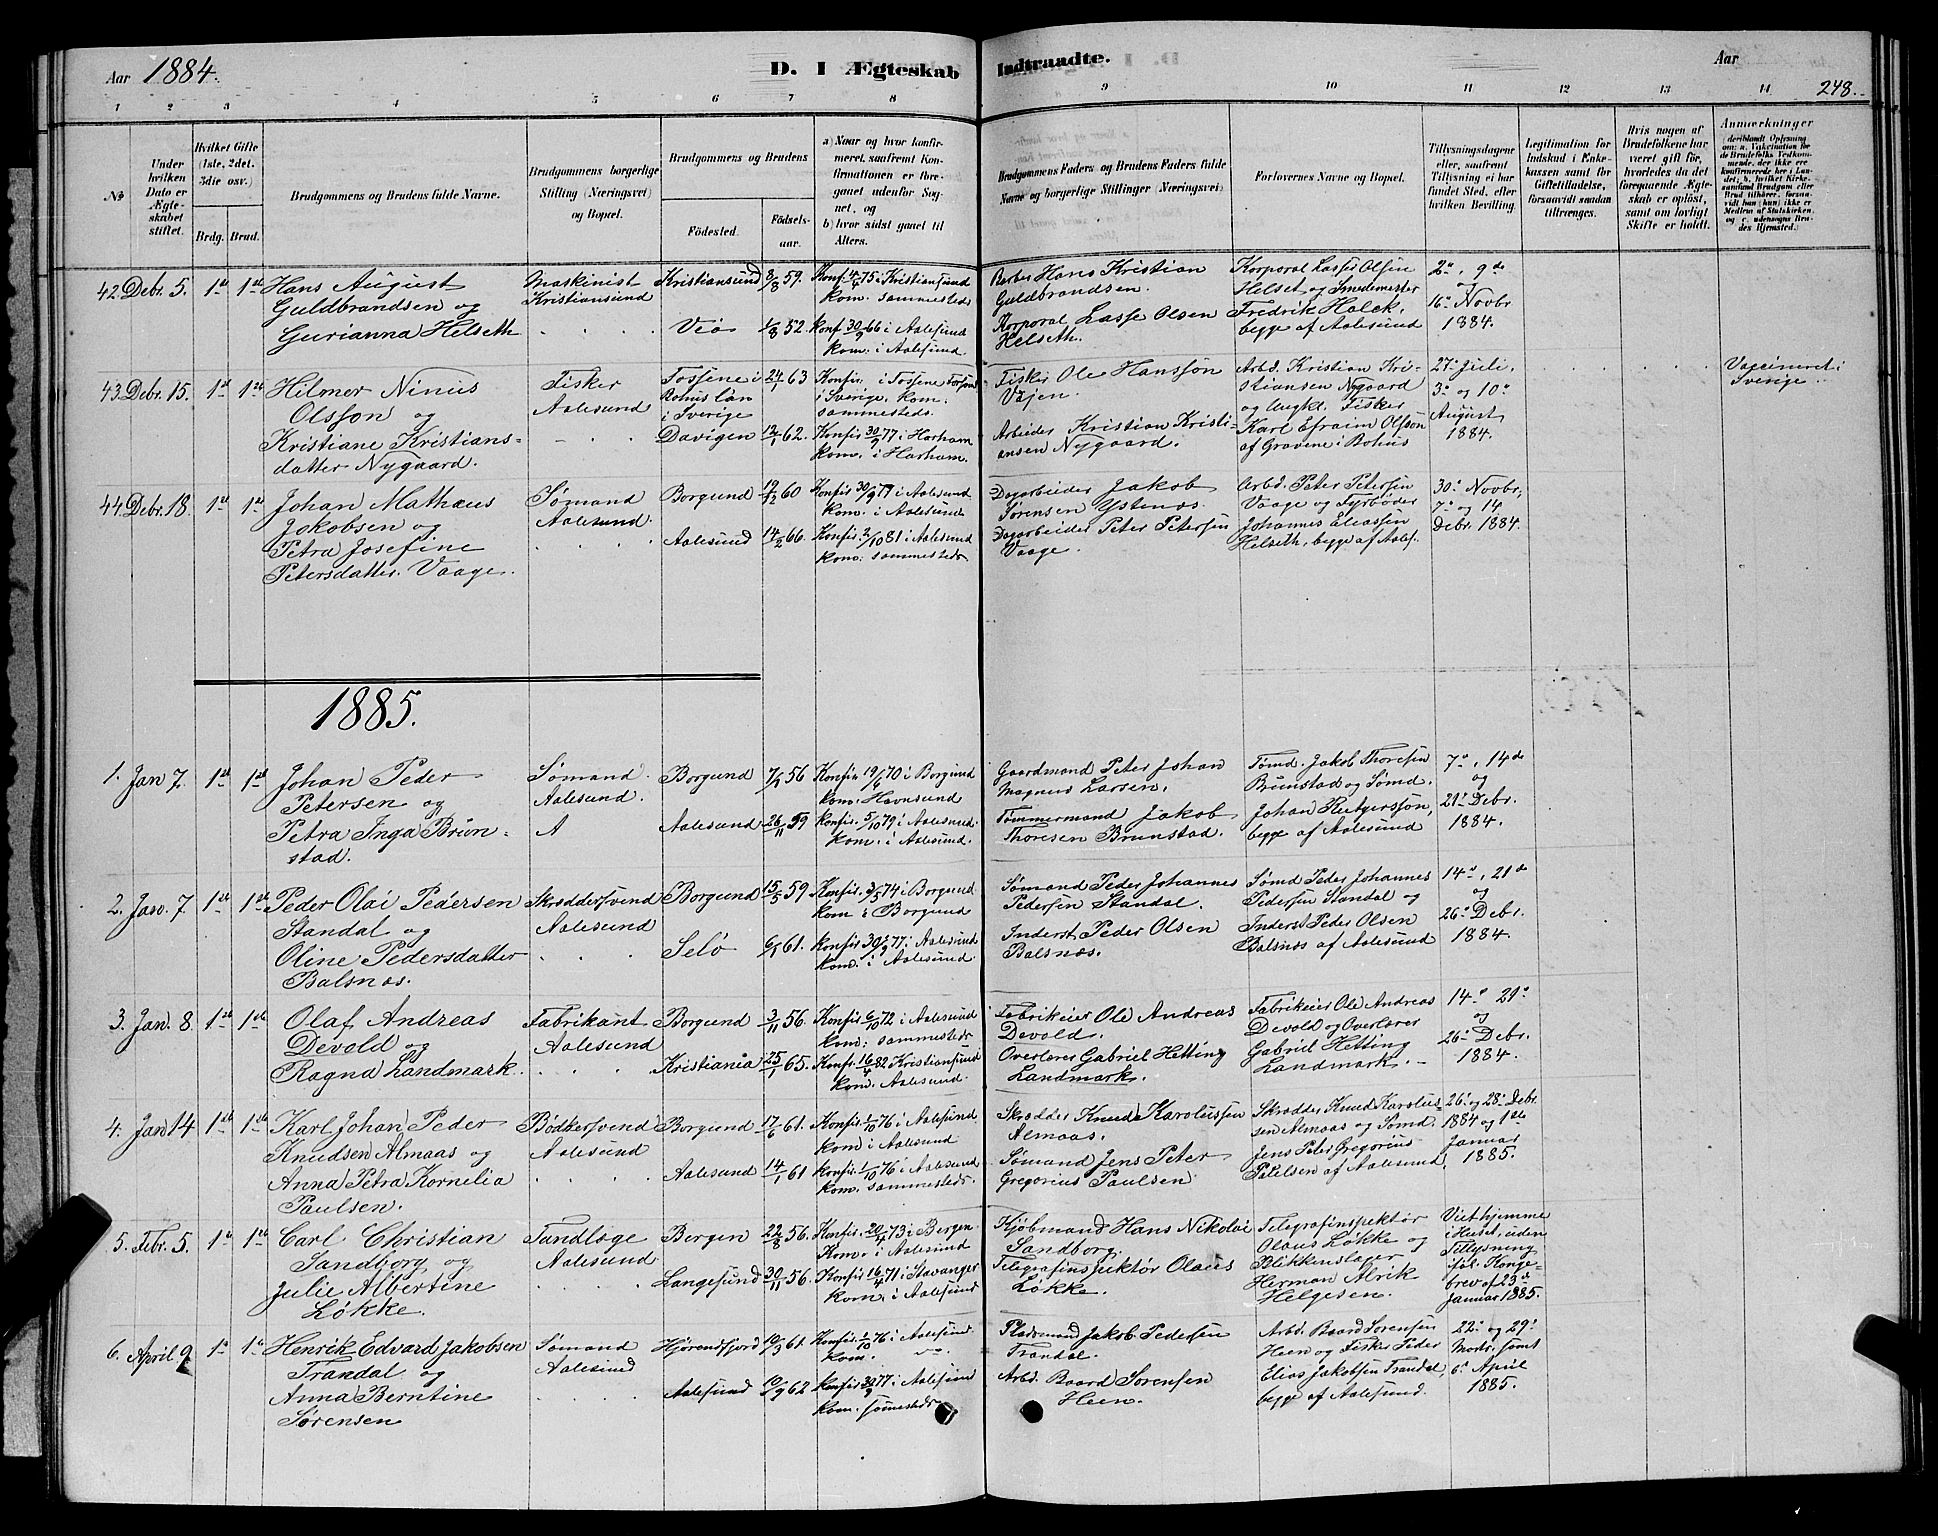 Aar 1884.
D. I Ægteskab Indtraadte.
Aar
248.
1 2 3 4 5 6 7 8 9 10 11 12 13 14
No
Under hvilken Dato er Ægteskabet stiftet.
Hvilket Gifte (1ste, 2det, 3die osv.)
Brdg. Brud.
Brudgommens og Brudens fulde Navne.
Brudgommens borgerlige Stilling (Næringsvei) og Bopæl.
Brudgommens og Brudens
Fødested.
Fødselsaar.
a) Naar og hvor konfirmeret, saafremt Konfirmationen er foregaaet udenfor Sognet, og
b) hvor sidst gaaet til Alters.
Brudgommens Faders og Brudens Faders fulde Navne og borgerlige Stillinger (Næringsvei)
Forlovernes Navne og Bopæl.
Tillysningsdagene eller, saafremt Tillysning ei har fundet Sted, efter hvilken Bevilling.
Legitimation for Indskud i Enkekassen samt for Giftetilladelse, forsaavidt saadan tiltrænges.
Hvis nogen af Brudefolkene har været gift før, hvorledes da det foregaaende Ægteskab er opløst, samt om lovligt Skifte er holdt.
Anmærkninger
42 Debr. 5. 1ste 1ste
Hans August
Guldbrandsen og
Gurianna Helseth
Maskinist
Kristiansund
Kristiansund 8/8 59.
Veø 52.
Konf. 75 i Kristiansund
kom. sammesteds
konf 30/9 66 i Aalesund
kom. i Aalesund.
Barber Hans Kristian
Guldbrandsen.
Korporal Lasse Olsen
Helseth.
Korporal Lasse Olsen
Helset og Smedemester
Fredrik Holck,
begge af Aalesund
2de, 9de
og
16de Novbr
1884.
43. Debr. 15. 1ste 1ste
Hilmer Ninus
Olsson og
Kristiane Kristians-
datter Nygaard.
Fisker
Aalesund
Tossene i
Bohus Län
i Sverige
24/1 63
Davigen 12/1 62.
Konfir. i Tossene Forsaml
i Sverige. kom.
sammesteds.
Konfir 30/9 77 i Harham
kom. i Harham.
Fisker Ole Hansson
Vajen.
Arbeider Kristian Kristi-
ansen Nygaard.
Arbd. Kristian Kri-
stiansen Nygaard
og Ungkl. Fisker
Karl Efraim Olsson
af Gravene i Bohus
27de Juli,
3de og 10de
August
1884.
Vaccineret i
Sverige
44 Debr. 18. 1ste 1ste
Johan Mathæus
Jakobsen og
Petra Josefine
Petersdatter Vaage.
Sømand
Aalesund.
Borgund 19/2 60
Aalesund 14/2 66.
Konfir 30/9 77 i Aalesund
kom. i Aalesund.
Konfir. 2/10 81 i Aalesund
kom. sammesteds
Dagarbeider Jakob
Sørensen Ystenes.
Dagarbeider Peter Petersen
Vaage.
Arbd. Peter Petersen
Vaage og Fyrbøder
Johannes Eliassen
Helseth, begge af Aales.
30te Novbr,
7de og 14
Debr. 1884.
1885.
1. Jan 7. 1ste 1ste
Johan Peder
Petersen og
Petra Inga Brun-
stad.
Sømand.
Aalesund.
Borgund 56
Aalesund 26/11 59
Konfir 19/6 70 i Borgund
kom. Havnsund
konfir. 5/10 79 i Aalesund.
kom. i Aalesund.
Gaardmand Peter Johan
Magnus Larsen.
Tømmermand Jakob
Thoresen Brunstad.
Tømd. Jakob Thoresen
Brunstad og Sømd.
Johan Rutgersson,
begge af Aalesund
7de, 14de
og
21de Debr.
1884.
2. Jan. 7. 1ste 1ste
Peder Olai Pedersen
Standal og
Oline Pedersdatter
Balsnæs.
Skræddersvend
Aalesund
Borgund 15/5 59
Selø 61.
Konfir. 3/5 74 i Borgund
kom i Borgund
konfir. 30/9 77 i Aalesund
kom. i Aalesund.
Sømand Peder Johannes
Pedersen Standal.
Inderst Peder Olsen
Balsnæs.
Sømd Peder Johannes
Pedersen Standal og
Inderst Peder Olsen
Balsnæs af Aalesund
14de, 21de
og
26de Debr.
1884.
3. Jan. 8. 1ste 1ste
Olaf Andreas
Devold og
Ragna Landmark.
Fabrikant
Aalesund
Borgund 3/11 56.
Kristiania 25/1 65.
Konfir. 6/10 72 i Aalesund
kom. sammesteds
Konfir. 16/4 82 Kristiansund
kom. Aalesund.
Fabrikeier Ole Andreas
Devold.
Overlærer Gabriel Hetting
Landmark.
Fabrikeier Ole Andreas
Devold og Overlærer
Gabriel Hetting
Landmark.
14de 21de
og
26de Debr.
1884.
4. Jan 14 1ste 1ste
Karl Johan Peder
Knudsen Almaas og
Anna Petra Kornelia
Paulsen.
Bødkersvend
Aalesund
Borgund 17/6 61.
Aalesund 14/1 61
Konfir. 1/10 76 i Aalesund.
kom i Aalesund
konfir. 1/10 76 i Aalesund
kom. sammesteds.
Skrædder Knud Karolussen
Almaas.
Sømand Jens Peter
Gregorius Paulsen
Skrædder Knud Karolus-
sen Almaas og Sømd.
Jens Peter Gregorius
Paulsen af Aalesund.
26de og 28de Debr.
1884 og 1ste
Januar
1885.
5. Febr. 5. 1ste 1ste
Carl Christian
Sandborg og
Julie Albertine
Løkke.
Tandlæge
Aalesund
Bergen 22/8 56.
Langesund 30/11 56.
Konfir. 20/4 73 i Bergen
Kom. i Aalesund
Konfir 16/4 71 i Stavanger
kom. i Aalesund
Kjøbmand Hans Nikolai
Sandborg.
Telegrafinspektør Olaus
Løkke.
Telegrafinspektør
Olaus Løkke og
Blikkenslager
Herman Alrik
Helgesen.
Viet hjemme
i Huset, uden
Tillysning
iføl. Konge-
brev af 23de
Januar 1885.
6. April 9 1ste 1ste
Henrik Edvard Jakobsen
Trandal og
Anna Berntine
Sørensen
Sømand
Aalesund
Hjørendfjord 19/3 61.
Aalesund 62
Konfir. 1/10 76 i Aalesund.
kom.
Konfir 30/9 77 i Aalesund
kom. sammesteds
Pladsmand Jakob Pedersen
Trandal.
Arbd. Baard Sørensen
Heen.
Arbd. Baard Sørensen
Heen og Fisker Peder
Elias Jakobsen Trandal,
begge af Aalesund.
22de og 29de
Marts, samt
6te April
1885.